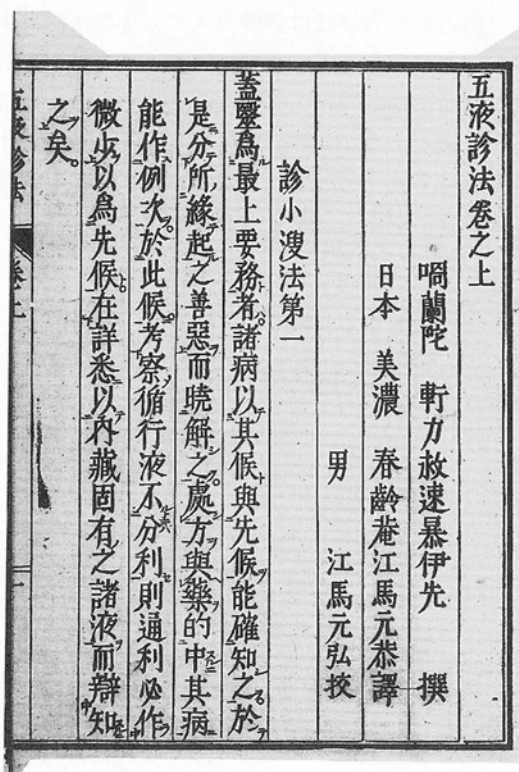 五液診法卷之上
喎蘭陀 斬力赦速暴伊先 撰
日本 美濃 春齡菴江馬元恭譯
男 江馬元弘挍
診小溲法第一
蓋毉為最上要務者諸病以其候與先候能確知之於
是分所緣起之善惡而曉解之處方與藥的中其病
能作例次於此候考察循行液不分利則通利必作
微少以為先候在詳悉以內藏固有之諸液而辯知
之矣